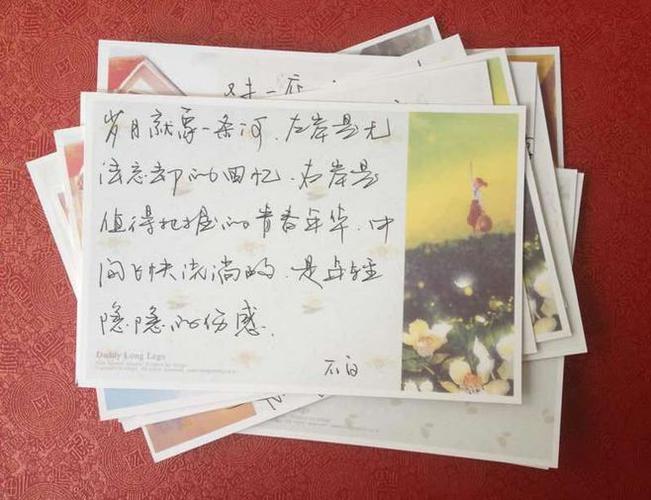 岁月就象一条河,左岸是无
法忘却的回忆,右岸是
值得把握的青春年华,中
间飞快流淌的,是年轻
隐隐的伤感.
Daddy Long Legs